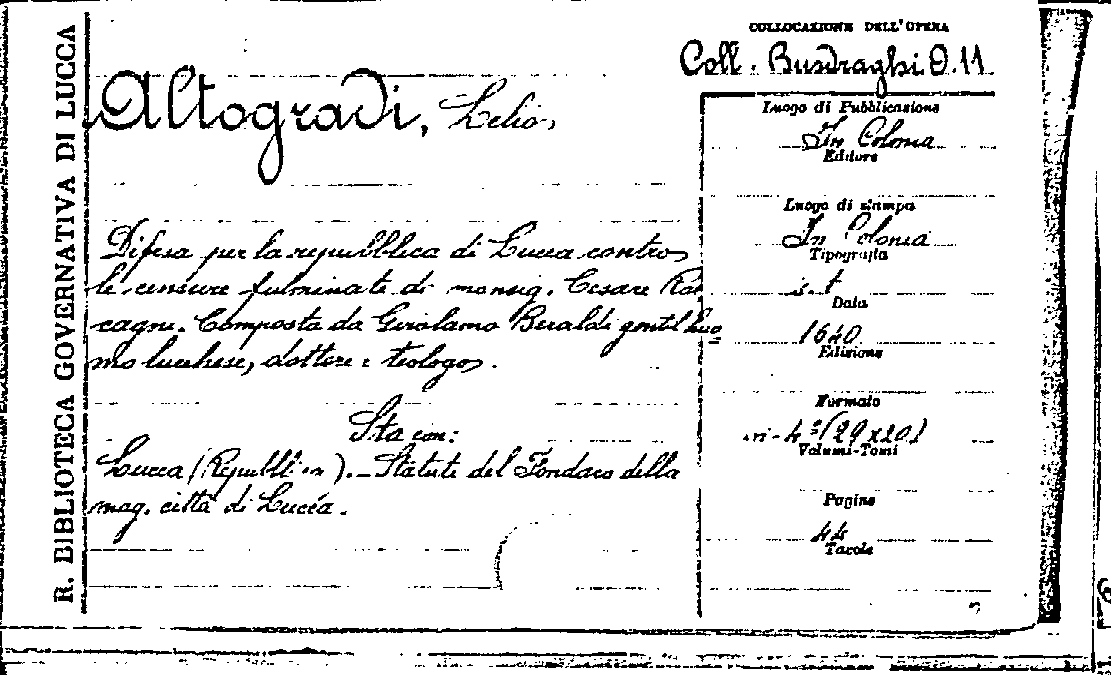 R. BIBLIOTECA GOVERNATIVA DI LUCCA
COLLOCAZIONE DELL'OPERA
Coll. Busdraghi D.11
Altogradi, Lelio,
Difesa per la repubblica di Lucca contro
le censure fulminate di monsig. Cesare Rac
cagni. Composta da Girolamo Beraldi gentil huo
mo lucchese, dottore e teologo.
Sta con:
Lucca (Repubblica). - Statuti del Fondaco della
mag. città di Lucca.
Luogo di Pubblicazione
In Colonia
Editore
Luogo di stampa
In Colonia
Tipografia
s.t
Data
1640
Edizione
Formato
4º (29x20)
Volumi-Tomi
Pagine
44
Tavole